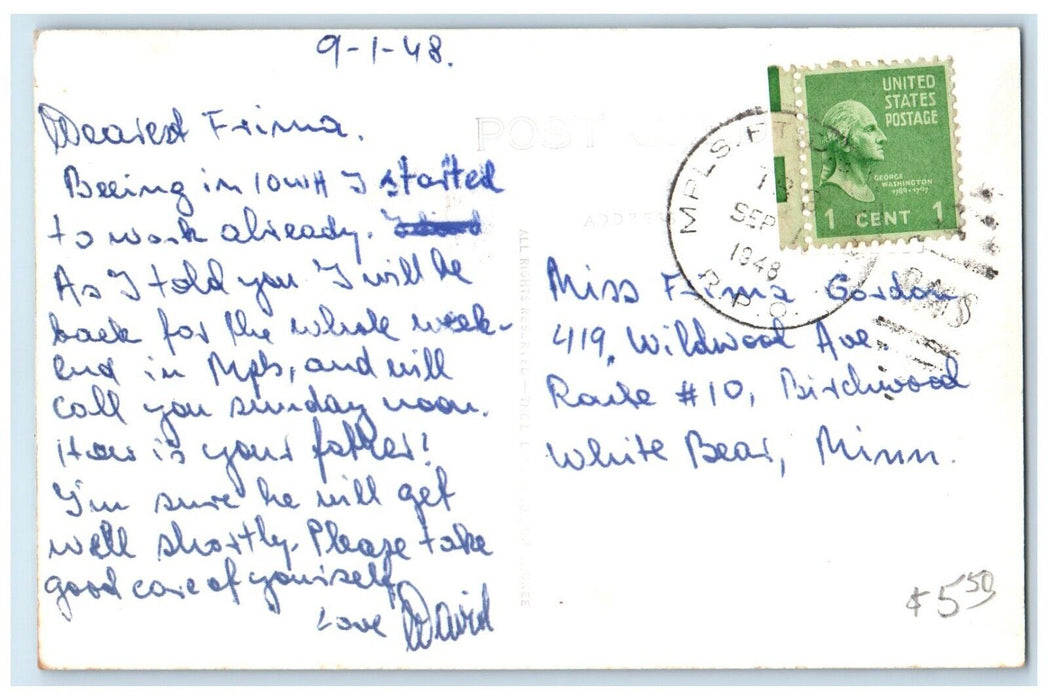 9-1-48.
Dearest Frima.
Beeing in IOWA I started
to work already.
As I told you I will be
back for the whole week-
end in Mpls, and will
call you sunday noon.
How is your father?
I'm sure he will get
well shortly. Please take
good care of yourself,
Love David
POST
ADDRESS
ALL RIGHTS RESERVED
UNITED
STATES
POSTAGE
GEORGE
WASHINGTON
1789-1797
1 CENT 1
MPLS.
SEP
1948
R.P.O.
RMS
Miss Frima Gordon
419, Wildwood Ave
Route #10, Birchwood
White Bear, Minn.
$5.50